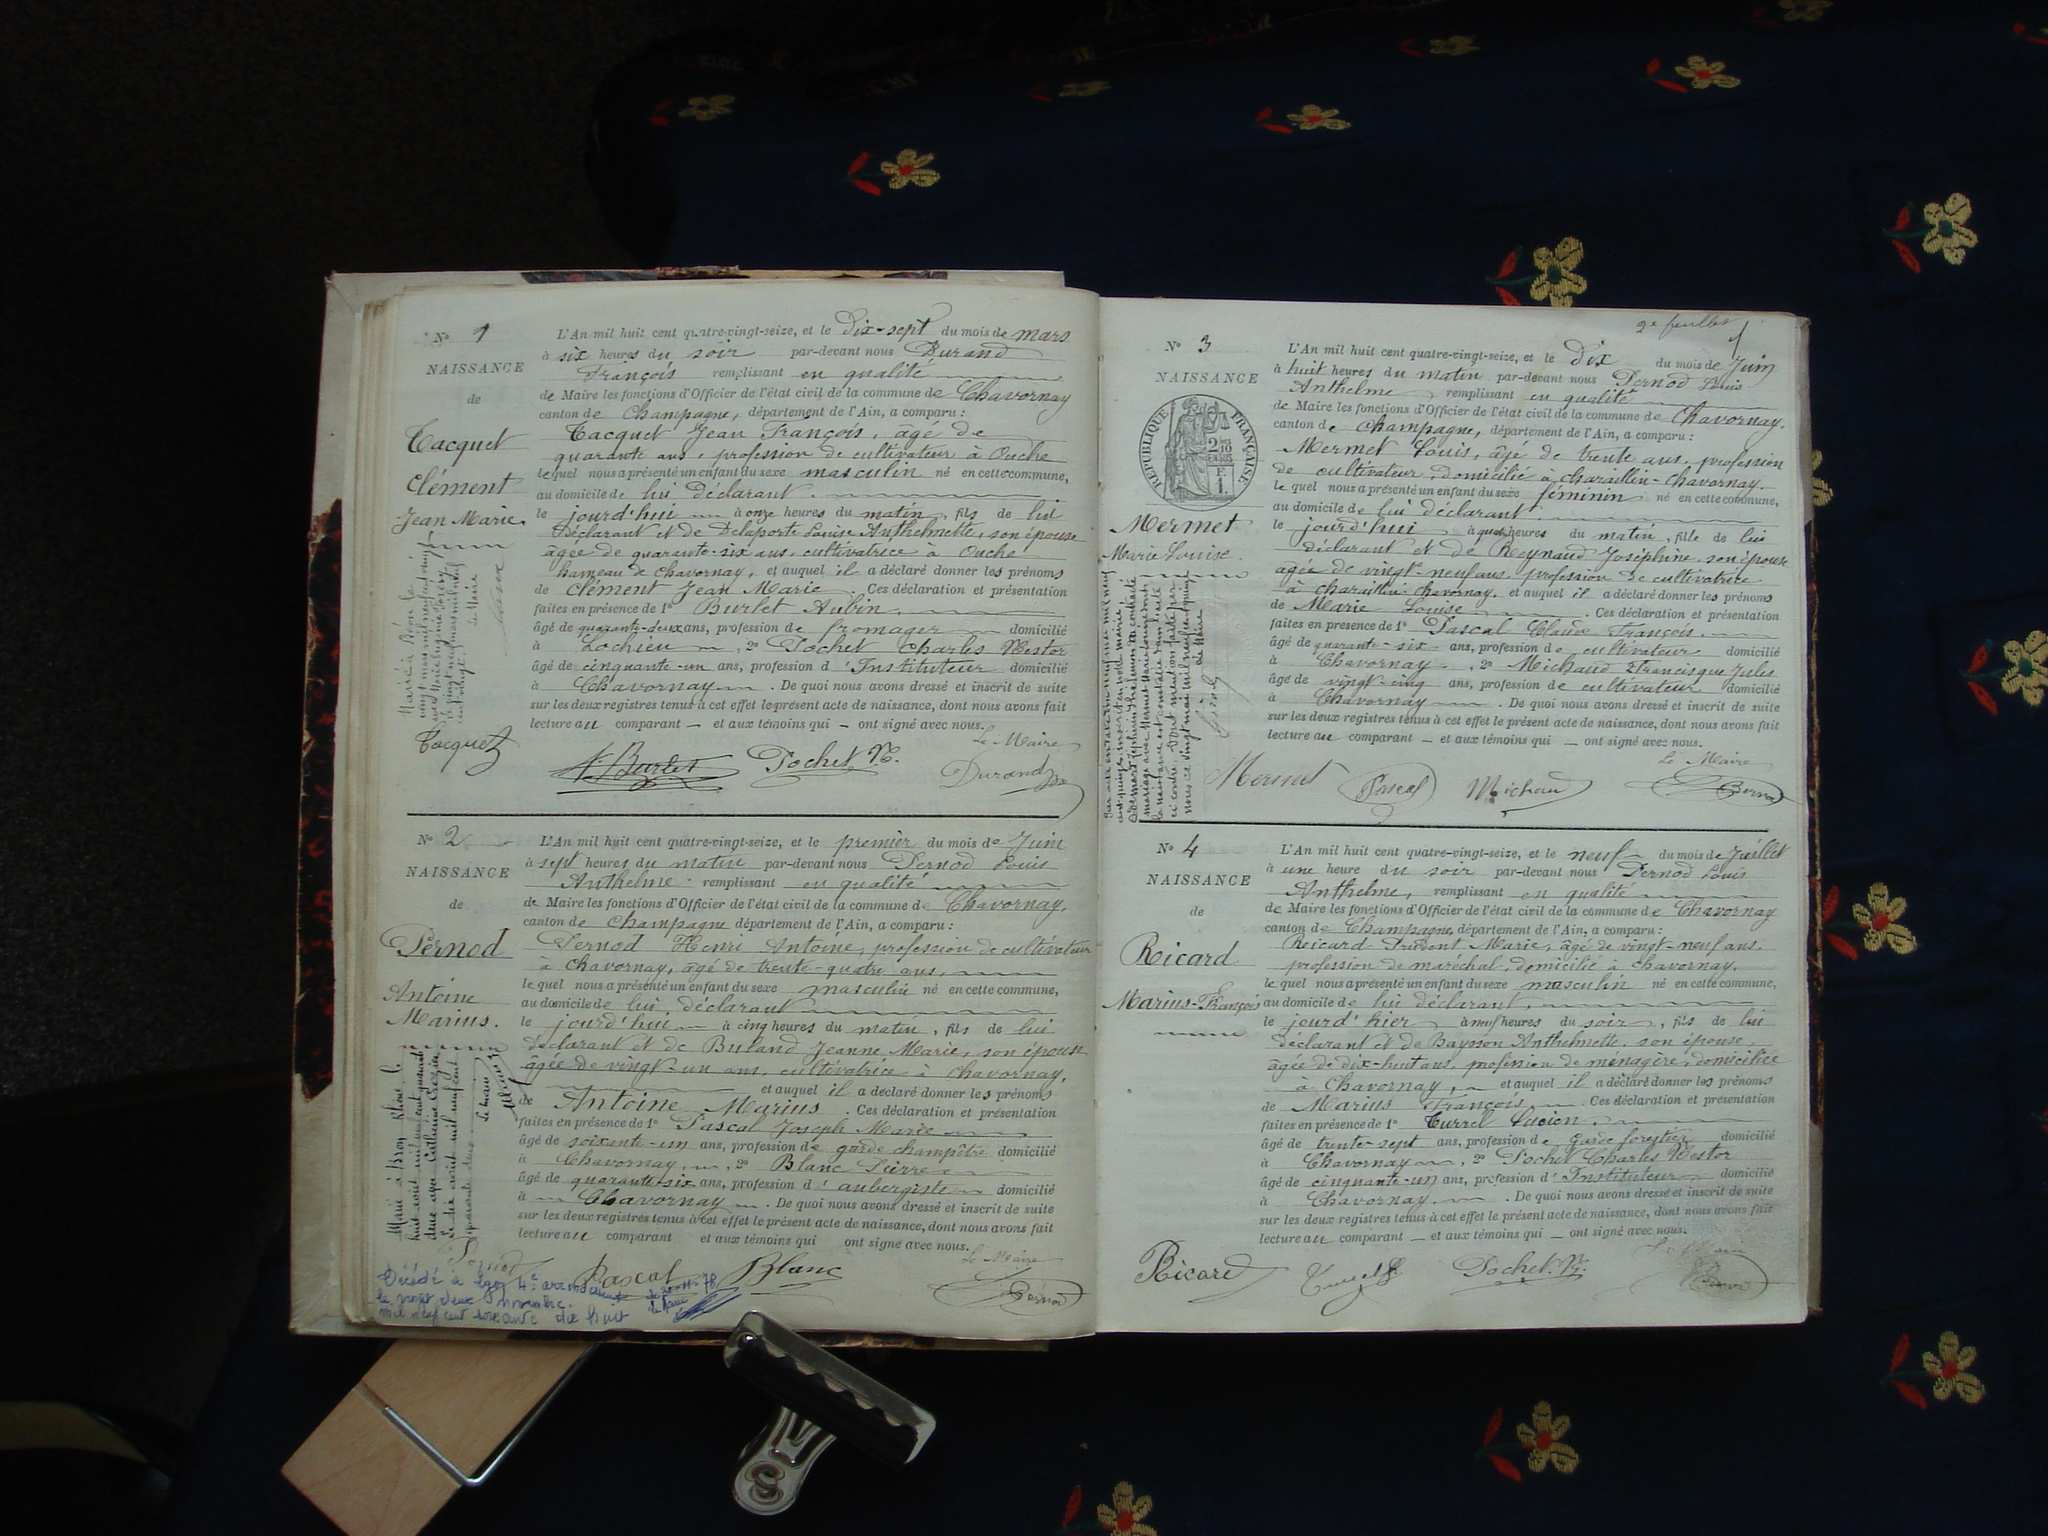 N° 1
NAISSANCE
de
Tacquet
Clément
Jean Marie
L'An mil huit cent quatre-vingt-seize, et le dix-sept du mois de mars
à six heures du soir par-devant nous Durand
François remplissant en qualité
de Maire les fonctions d'Officier de l'état civil de la commune de Chavornay
canton de Champagne, département de l'Ain, a comparu :
Tacquet Jean François, âgé de
quarante ans, profession de cultivateur à Ouche
lequel nous a présenté un enfant du sexe masculin né en cette commune,
au domicile de lui déclarant
le jourd'hui à onze heures du matin, fils de lui
déclarant et de Delaporte Louise Anthelmette, son épouse
âgée de quarante-six ans, cultivatrice à Ouche
hameau de Chavornay, et auquel il a déclaré donner les prénoms
de Clément Jean Marie. Ces déclaration et présentation
faites en présence de 1° Burlet Aubin
âgé de quarante-deux ans, profession de fromager domicilié
à Lochieu, 2° Pochet Charles Nestor
âgé de cinquante-un ans, profession d'Instituteur domicilié
à Chavornay. De quoi nous avons dressé et inscrit de suite
sur les deux registres tenus à cet effet le présent acte de naissance, dont nous avons fait
lecture au comparant et aux témoins qui ont signé avec nous.
Le Maire
Tacquet A. Burlet Pochet N. Durand
N° 2
NAISSANCE
de
Pernod
Antoine
Marius.
L'An mil huit cent quatre-vingt-seize, et le premier du mois de Juin
à sept heures du matin par-devant nous Pernod Louis
Anthelme remplissant en qualité
de Maire les fonctions d'Officier de l'état civil de la commune de Chavornay,
canton de Champagne département de l'Ain, a comparu :
Pernod Henri Antoine, profession de cultivateur
à Chavornay, âgé de trente-quatre ans,
le quel nous a présenté un enfant du sexe masculin né en cette commune,
au domicile de lui déclarant
le jourd'hui à cinq heures du matin, fils de lui
déclarant et de Buland Jeanne Marie, son épouse
âgée de vingt-un ans, cultivatrice à Chavornay,
et auquel il a déclaré donner les prénoms
de Antoine Marius. Ces déclaration et présentation
faites en présence de 1° Pascal Joseph Marie
âgé de soixante-un ans, profession de garde champêtre domicilié
à Chavornay, 2° Blanc Pierre
âgé de quarante-six ans, profession d'aubergiste domicilié
à Chavornay. De quoi nous avons dressé et inscrit de suite
sur les deux registres tenus à cet effet le présent acte de naissance, dont nous avons fait
lecture au comparant et aux témoins qui ont signé avec nous.
Le Maire
Pascal Blanc Pernod
Marié à Bron Rhône, le
Décédé à Lyon 4e arrondissement
le vingt deux novembre
mil neuf cent soixante dix huit
le Maire
2e feuillet
1
N° 3
NAISSANCE
RÉPUBLIQUE FRANÇAISE
Mermet
Marie Louise
L'An mil huit cent quatre-vingt-seize, et le dix du mois de Juin
à huit heures du matin par-devant nous Pernod Louis
Anthelme remplissant en qualité
de Maire les fonctions d'Officier de l'état civil de la commune de Chavornay.
canton de Champagne, département de l'Ain, a comparu :
Mermet Louis, âgé de trente ans, profession
de cultivateur, domicilié à Charaillin-Chavornay.
le quel nous a présenté un enfant du sexe féminin né en cette commune,
au domicile de lui déclarant
le jourd'hui à quatre heures du matin, fille de lui
déclarant et de Reynaud Joséphine, son épouse
âgée de vingt-neuf ans, profession de cultivatrice
à Charaillin-Chavornay, et auquel il a déclaré donner les prénoms
de Marie Louise. Ces déclaration et présentation
faites en présence de 1° Pascal Claude François
âgé de quarante-six ans, profession de cultivateur domicilié
à Chavornay, 2° Michaud Francisque Jules
âgé de vingt-cinq ans, profession de cultivateur domicilié
à Chavornay. De quoi nous avons dressé et inscrit de suite
sur les deux registres tenus à cet effet le présent acte de naissance, dont nous avons fait
lecture au comparant et aux témoins qui ont signé avec nous.
Le Maire
Mermet Pascal Michaud Pernod
N° 4
NAISSANCE
de
Ricard
Marius-François
L'An mil huit cent quatre-vingt-seize, et le neuf du mois de Juillet
à une heure du soir par-devant nous Pernod Louis
Anthelme, remplissant en qualité
de Maire les fonctions d'Officier de l'état civil de la commune de Chavornay
canton de Champagne, département de l'Ain, a comparu :
Ricard Prudent Marie, âgé de vingt-neuf ans,
profession de maréchal, domicilié à Chavornay,
le quel nous a présenté un enfant du sexe masculin né en cette commune,
au domicile de lui déclarant,
le jourd'hier à neuf heures du soir, fils de lui
déclarant et de Baysson Anthelmette, son épouse,
âgée de dix-huit ans, profession de ménagère, domiciliée
à Chavornay, et auquel il a déclaré donner les prénoms
de Marius François. Ces déclaration et présentation
faites en présence de 1° Turrel Lucien
âgé de trente-sept ans, profession de garde forestier domicilié
à Chavornay, 2° Pochet Charles Nestor
âgé de cinquante-un ans, profession d'Instituteur domicilié
à Chavornay. De quoi nous avons dressé et inscrit de suite
sur les deux registres tenus à cet effet le présent acte de naissance, dont nous avons fait
lecture au comparant et aux témoins qui ont signé avec nous.
Le Maire
Ricard Turrel Pochet N. Pernod